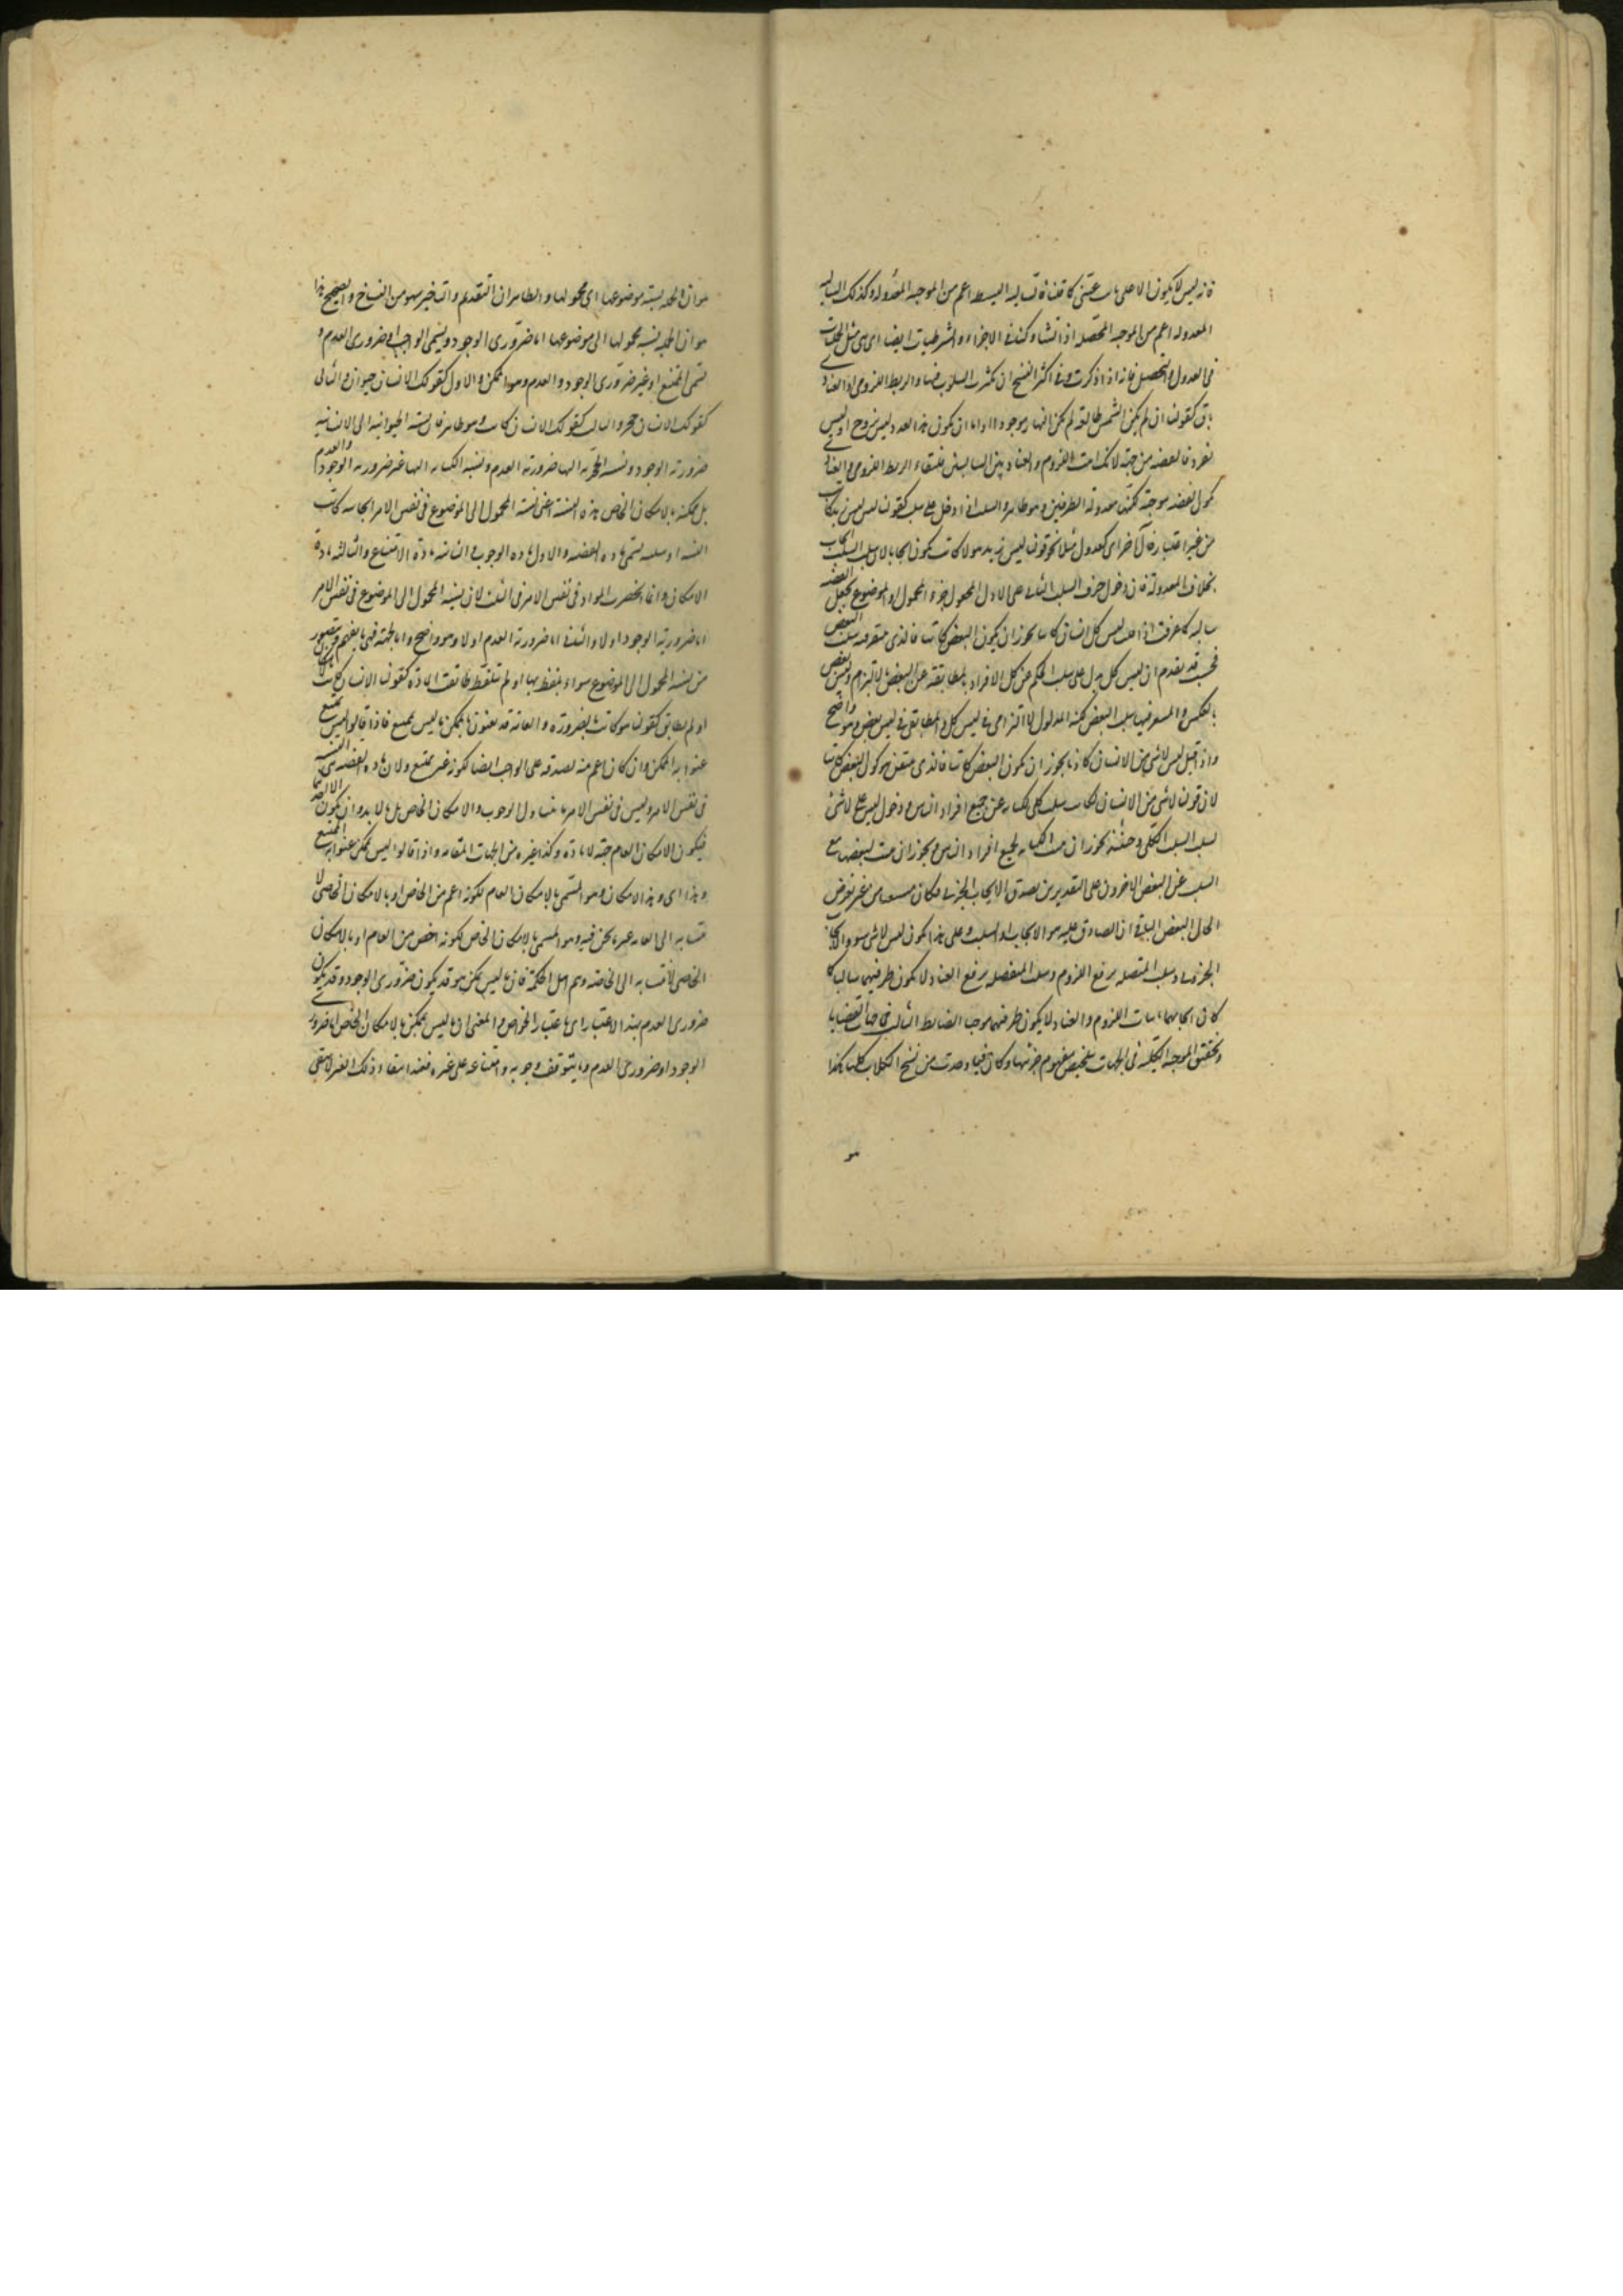 فانه ليس لا يكون الا على ثابت السالبه البسيطه اعم من الموجبه المعدوله وكذلك السالبه
المعدوله اعم من الموجبه المحصله اذا تشاركتا فى الاجزاء والشرطيات ايضا اى هى مثل الحمليات
فى العدول والتحصيل فانه اذا ذكرت وفى اكثر النسخ ان كثرت السلوب فيها والربط اللزومى او العناد
باق كقولنا ان لم يكن الشمس طالعة لم يكن النهار موجودا او اما ان يكون هذا العدد ليس بزوج او ليس
بفرد فالقضيه موجبة لانك اثبت اللزوم والعناد بين السالبتين فلبقاء الربط اللزومى والعنادى
يكون القضيه موجبة لكنها معدولة الطرفين وهو ظاهر والسلب اذا دخل على سلب كقولنا ليس ليس بكاتب
من غير اعتبار حال آخر اى كعدول مثلا نحو قولنا ليس زيد هو لا كاتب يكون ايجابا لان سلب السلب ايجاب
بخلاف المعدولة فان دخول حرف السلب الثانى على الاول المجعول جزء المحمول او الموضوع يجعل القضيه
سالبه كما عرفت اذا قلت ليس كل انسان كاتبا يجوز ان يكون البعض كاتبا فالذى يتيقن فيه سلب البعض
فحسب قد تقدم ان ليس كل يدل على سلب الحكم عن كل الافراد بالمطابقة وعن البعض بالالتزام وليس بعض
بالعكس والمتيقن فيهما سلب البعض لكنه المدلول الالتزامى فى ليس كل والمطابقى فى ليس بعض وهو واضح
واذا قيل ليس لا شئ من الانسان كاتبا يجوز ان يكون البعض كاتبا فالذى يتيقن هو كون البعض كاتبا
لان قولنا لا شئ من الانسان بكاتب سلب كلى لكتابه عن جميع افراد الناس ودخول ليس على لا شئ
لسلب السلب الكلى وحينئذ يجوز ان يثبت الكتابه لجميع افراد الناس ويجوز ان يثبت لبعضها مع
السلب عن البعض الآخر وعلى التقديرين يصدق الايجاب الجزئى فكان متيقنا من غير تعرض
لحال البعض الباقى ان الصادق عليه هو الايجاب او السلب وعلى هذا يكون ليس لا شئ سور الايجاب
الجزئى وسلب المتصله برفع اللزوم وسلب المنفصله برفع العناد ولا يكون طرفيهما سالبا كما
كان ايجابهما باثبات اللزوم والعناد لا يكون طرفيهما موجبا الضابط الثالث فى جهات القضايا
وتحقيق الموجبه الكليه فى الجهات بتلخيص مفهوم جزئيها وكان فيما وجدت من نسخ الكتاب كلها هكذا
هو
هو ان الحمليه نسبة موضوعها الى محمولها والظاهر ان التقديم والتاخير سهو من النساخ والصحيح هذا
هو ان الحمليه نسبة محمولها الى موضوعها اما ضرورى الوجود ويسمى الواجب او ضرورى العدم و
يسمى الممتنع او غير ضرورى الوجود والعدم وهو الممكن والاول كقولك الانسان حيوان والثانى
كقولك الانسان حجر والثالث كقولك الانسان كاتب وهو ظاهر فان نسبة الحيوانية الى الانسانية
ضرورية الوجود ونسبة الحجرية اليها ضرورية العدم ونسبة الكتابه اليها غير ضرورية الوجود والعدم
بل ممكنه بالامكان الخاص هذه النسبة اعنى نسبة المحمول الى الموضوع فى نفس الامر ايجابيه كانت
النسبة او سلبيه يسمى مادة القضيه والاول مادة الوجوب والثانيه مادة الامتناع والثالثه مادة
الامكان وانما انحصرت المواد فى نفس الامر فى الثلث لان نسبة المحمول الى الموضوع فى نفس الامر
اما ضرورية الوجود او لا والثانى اما ضرورية العدم او لا وهو واضح واما الجهة فهى ما يفهم ويتصور
من نسبة المحمول الى الموضوع سواء تلفظ بها او لم تتلفظ طابقت المادة كقولنا الانسان كاتب بالامكان
او لم يطابق كقولنا هو كاتب بالضرورة والعامة قد يعنون بالممكن ما ليس بممتنع فاذا قالوا ليس بممتنع
عنوا به الممكن وان كان اعم منه لصدقه على الواجب ايضا لكونه غير ممتنع ولان مادة القضيه هى النسبة
فى نفس الامر وليس فى نفس الامر ما يتناول الوجوب والامكان الخاص بل لا بد وان يكون احدهما
فيكون الامكان العام جهة لا مادة وكذا غيره من الجهات المتقابله واذا قالوا ليس بممكن عنوا به الممتنع
وهذا اى وهذا الامكان وهو المسمى بالامكان العام لكونه اعم من الخاص او بالامكان العامى لا
نتسابه الى العامه غير ما نحن فيه وهو المسمى بالامكان الخاص لكونه اخص من العام او بالامكان
الخاصى لانتسابه الى الخاصة وهم اهل الحكمة فان ما ليس بممكن هو قد يكون ضرورى الوجود وقد يكون
ضرورى العدم بهذا الاعتبار اى باعتبار الخواص والمعنى ان ما ليس بممكن بالامكان الخاص اما ضرورى
الوجود او ضرورى العدم وما يتوقف وجوبه وامتناعه على غيره فعند انتفاء ذلك الغير لا يبقى